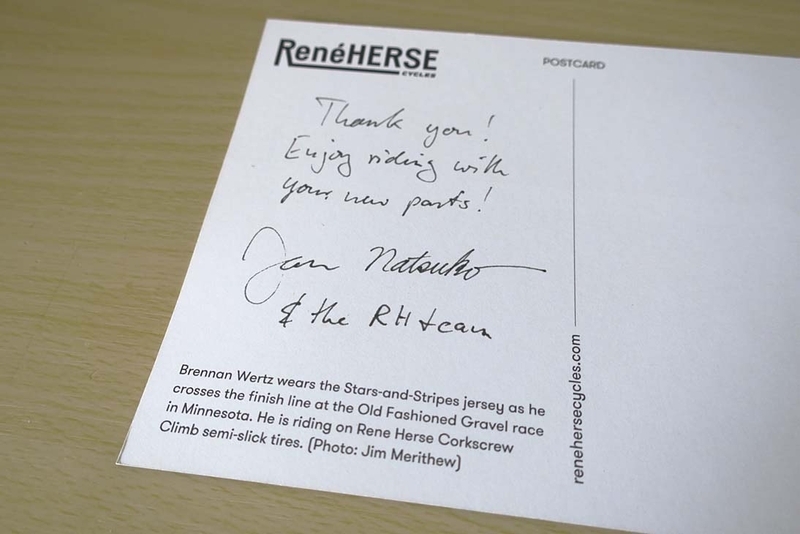 RenéHERSE
CYCLES
POSTCARD
Thank you!
Enjoy riding with
your new parts!
Jan Natsuko
& the RH team
Brennan Wertz wears the Stars-and-Stripes jersey as he
crosses the finish line at the Old Fashioned Gravel race
in Minnesota. He is riding on Rene Herse Corkscrew
Climb semi-slick tires. (Photo: Jim Merithew)
renehersecycles.com